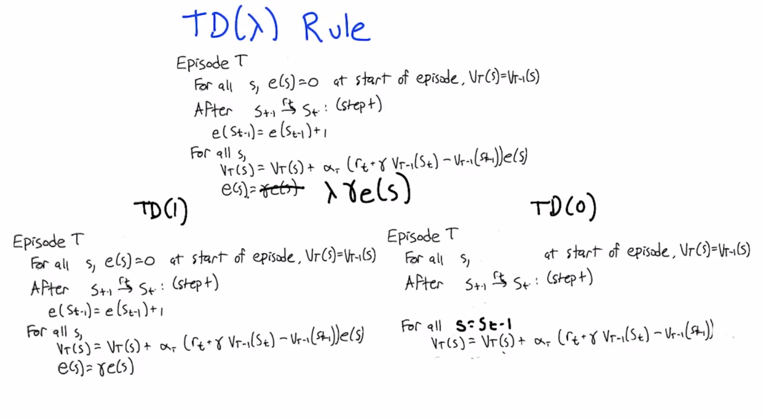 TD(λ) Rule
Episode T
For all s, e(s)=0 at start of episode, V_T(s)=V_T-1(s)
After S_t-1 →^r_t S_t: (step t)
e(S_t-1)=e(S_t-1)+1
For all s,
V_T(s)=V_T(s)+ α_T (r_t+γ V_T-1(S_t)-V_T-1(S_t-1))e(s)
e(s)=γe(s) λγe(s)
TD(1)
Episode T
For all s, e(s)=0 at start of episode, V_T(s)=V_T-1(s)
After S_t-1 →^r_t S_t: (step t)
e(S_t-1)=e(S_t-1)+1
For all s,
V_T(s)=V_T(s)+ α_T (r_t+γ V_T-1(S_t)-V_T-1(S_t-1))e(s)
e(s)=γe(s)
TD(0)
Episode T
For all s, at start of episode, V_T(s)=V_T-1(s)
After S_t-1 →^r_t S_t: (step t)
For all s=S_t-1
V_T(s)=V_T(s)+ α_T (r_t+γ V_T-1(S_t)-V_T-1(S_t-1))